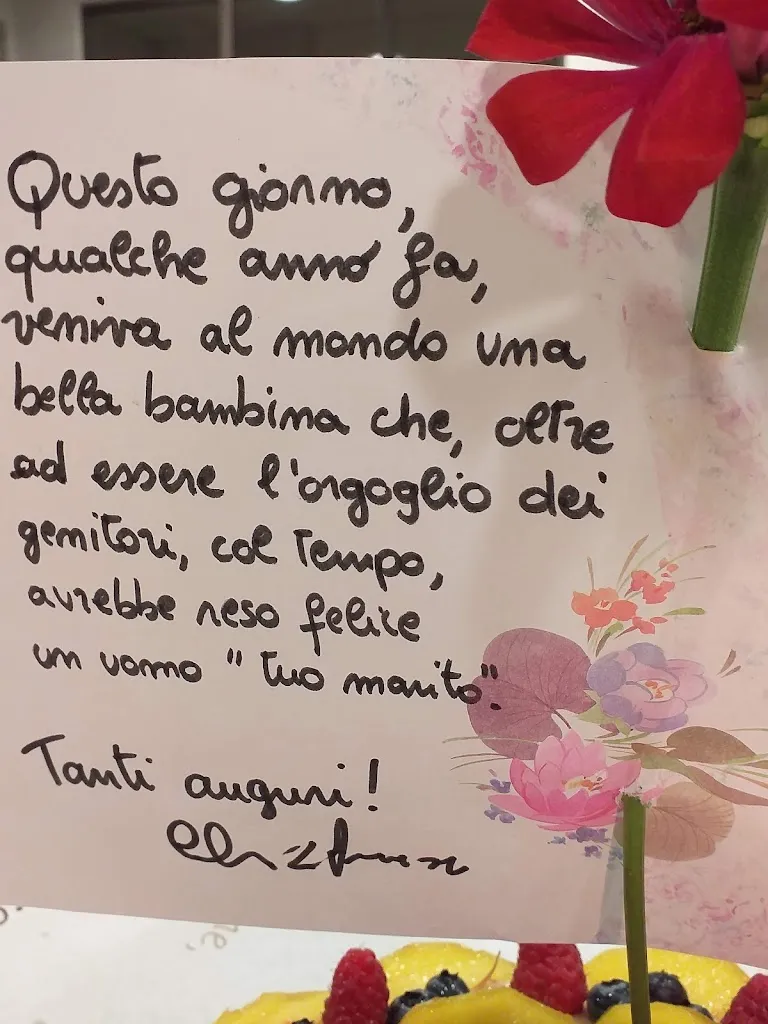 Questo giorno,
qualche anno fa,
veniva al mondo una
bella bambina che, oltre
ad essere l'orgoglio dei
genitori, col tempo,
avrebbe reso felice
un uomo "tuo marito".
Tanti auguri!